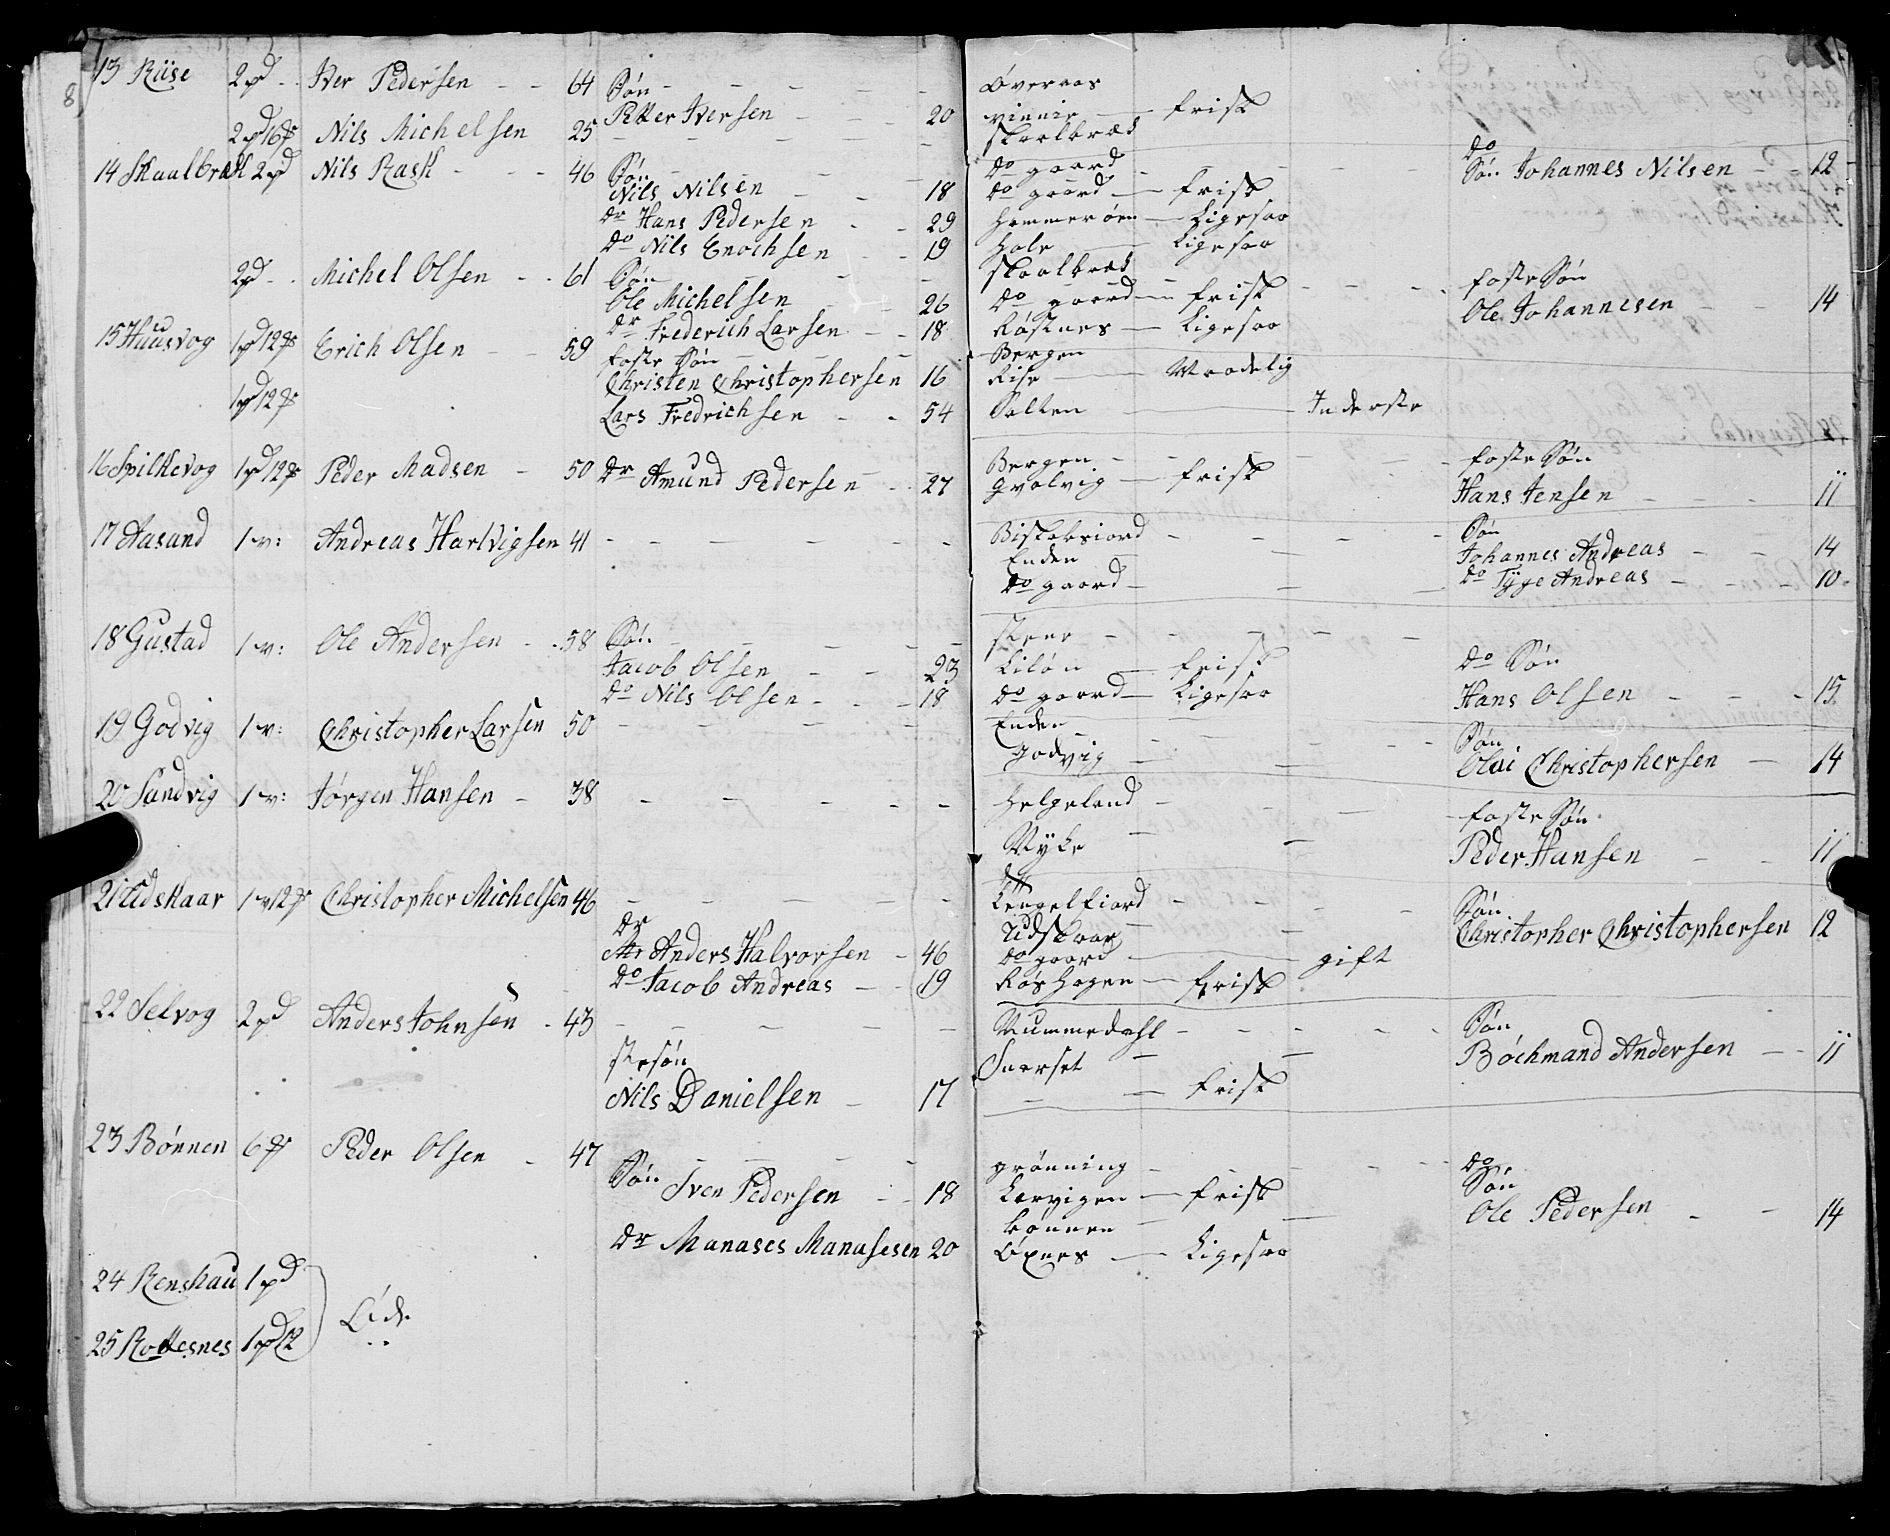 8
13 Riise 2 pd - Iver Pedersen - - 64 Søn - - - Overaas
Petter Iversen - - 20 vinnie - frisk
2 pd 16 Nils Michelsen 25 - - - Skaalbræk
14 Skaalbræk 2 pd Nils Rask - - 46 Søn - - do gaard - - - do Søn Johannes Nilsen - - 12
Nils Nilsen - - 18 do gaard - frisk
Dr Hans Pedersen - - 29 Hammerøen - Ligesaa
do Nils Enochsen - - 19 Hole - Ligesaa
2 pd - Michel Olsen - - 61 Søn - - Skaalbræk foster Søn
Ole Michelsen - 26 do gaard - frisk - - - Ole Johannesen - 14
Dr Frederich Larsen - - 18 Røstnes - Ligesaa
15 Huusvog 1 pd 12 Erich Olsen - - 59 foster Søn - - Bergen
Christen Christophersen 16 Riise - Maadelig
1 pd 12 Lars Fredrichsen - - 54 Salten - Inderste
16 Spilkevog 1 pd 12 Peder Madsen - 50 - - Bergen - - - foster Søn
Dr Amund Pedersen - - 27 Gvalvig - frisk Hans Jensen - - - 11
17 Aasand 1 v: Andreas Hartvigsen 41 - - - - Biskaksiord - - - Søn
Enden Johannes Andreas - - 14
do gaard - - do Tÿge Andreas - - - 10
18 Gustad 1 v: Ole Andersen - - 58 Søn - - - Stene - - - -
Jacob Olsen - - 23 Liløn - frisk do Søn
do Nils Olsen - - - 18 do gaard - Ligesaa Hans Olsen - - - 15
19 Godvig 1 v: Christopher Larsen 50 - - - Enden - - - Søn
Godvig - - Olai Christophersen - 14
20 Sandvig 1 v: Jørgen Hansen - 38 - - - - - Helgeland - - foster Søn
Myke - - Peder Hansen - - 11
21 Udskaar 1 v 12 Christopher Michelsen 46 - - - - Lengelfiord - - - Søn
Udskaar - - Christopher Christophersen 12
Dr Anders Halvorsen - 46 do gaard - gift
do Jacob Andreas - - 19 Røshagen - frisk
22 Selvog 2 pd Anders Johnsen - 43 - - - - Nummedahl - - - - - Søn
Snerset - - Bóchmand Andersen - - 11
Stesøn
Nils Danielsen - 17 - - frisk
23 Bønnen 6 Peder Olsen - 47 - - - - grønning - - - - - do
Søn Sven Pedersen - - 18 Korvigen - frisk Søn
bønnen - - Ole Pedersen - - 14
Dr Manases Manasesen 20 Oxnes - Ligesaa
24 Renskau 1 pd
Øde
25 Rottesnes 1 pd 12